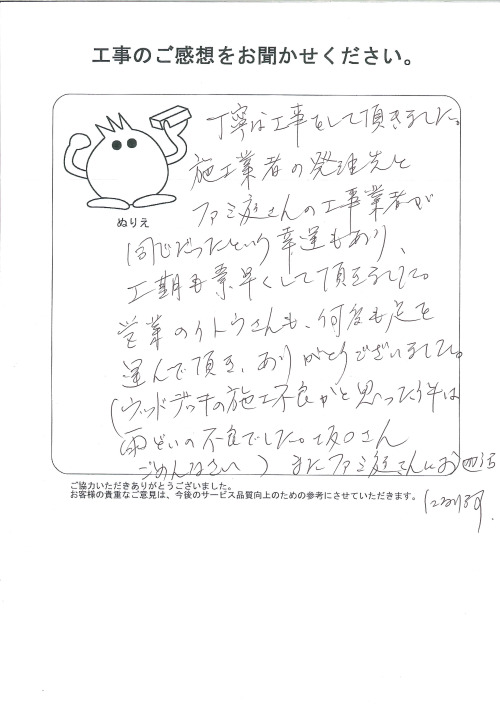 工事のご感想をお聞かせください。
丁寧な工事をして頂きました。
施工業者の発注先と
ファミ庭さんの工事業者が
同じだったという幸運もあり、
工期も早くして頂きました。
営業のイトウさんも、何度も足を
運んで頂き、ありがとうございました。
(ウッドデッキの施工不良かと思った件は
雨どいの不良でした。坂口さん
ごめんなさい) またファミ庭さんにお世話
になります。
ぬりえ
ご協力いただきありがとうございました。
お客様の貴重なご意見は、今後のサービス品質向上のための参考にさせていただきます。